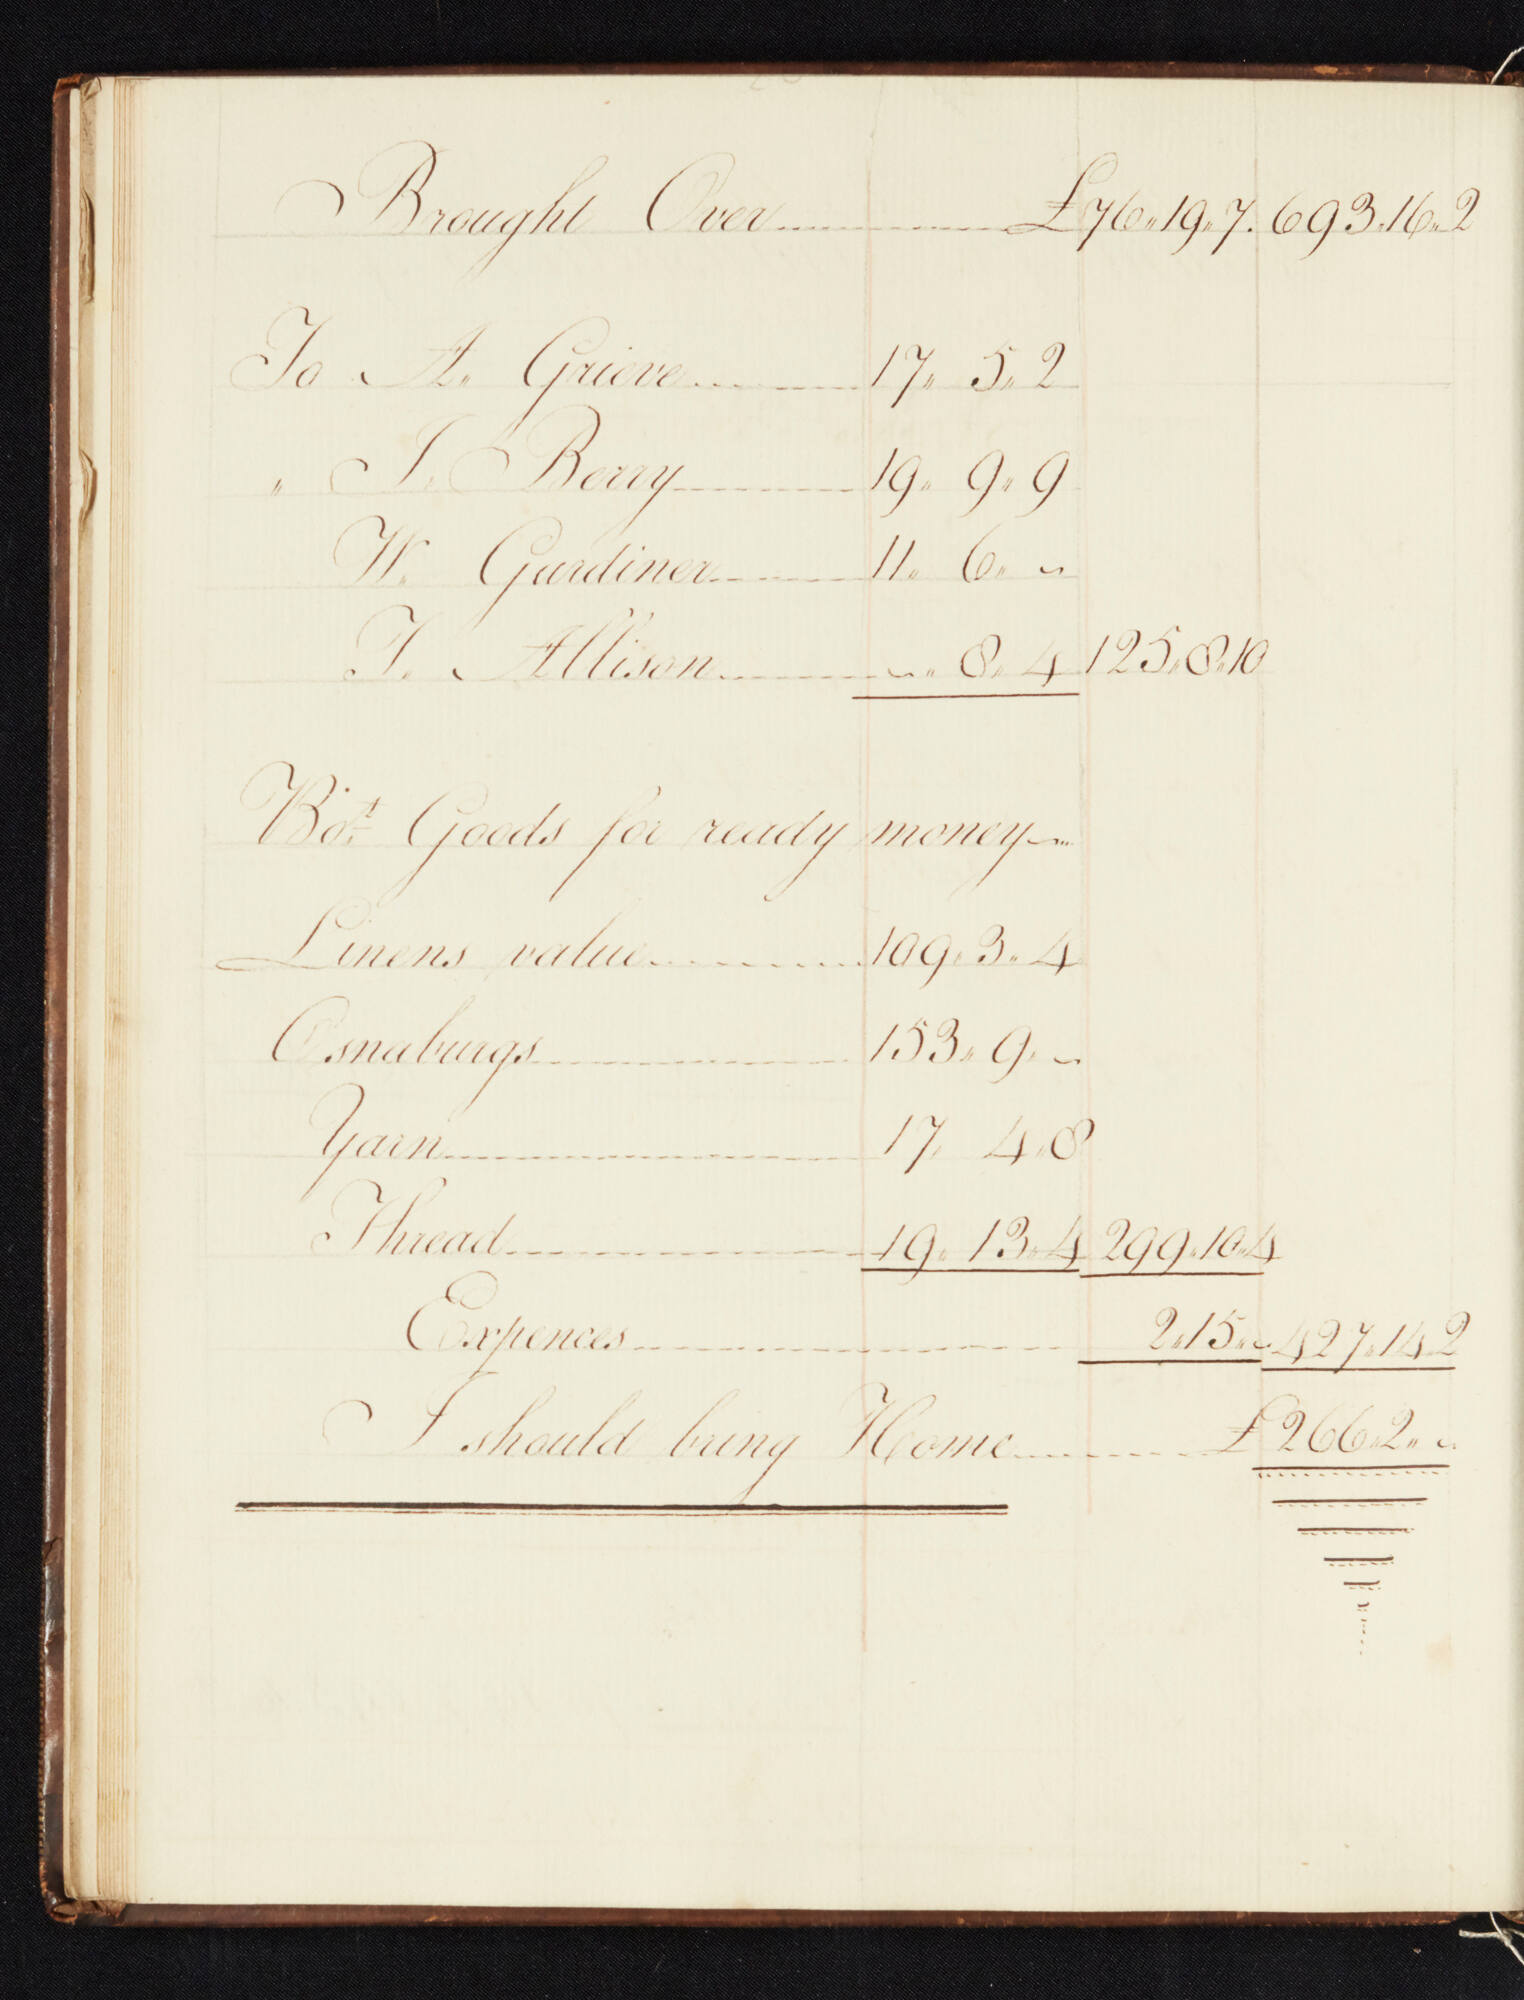 Brought Over £76„19„7. 693„16„2
To A. Grieve 17„ 5„2
„ J. Berry 19„ 9„9
W. Gardiner 11„ 6„ ~
J. Allison ~„ 8„4 125„8„10
Bo.t Goods for ready money
Linens value 109„3„4
Osnaburgs 153„9„ ~
Yarn 17„ 4„8
Thread 19„ 13„4 299„10„4
Expences 2„15„~ 427„14„2
I should bring Home £266„2„ ~